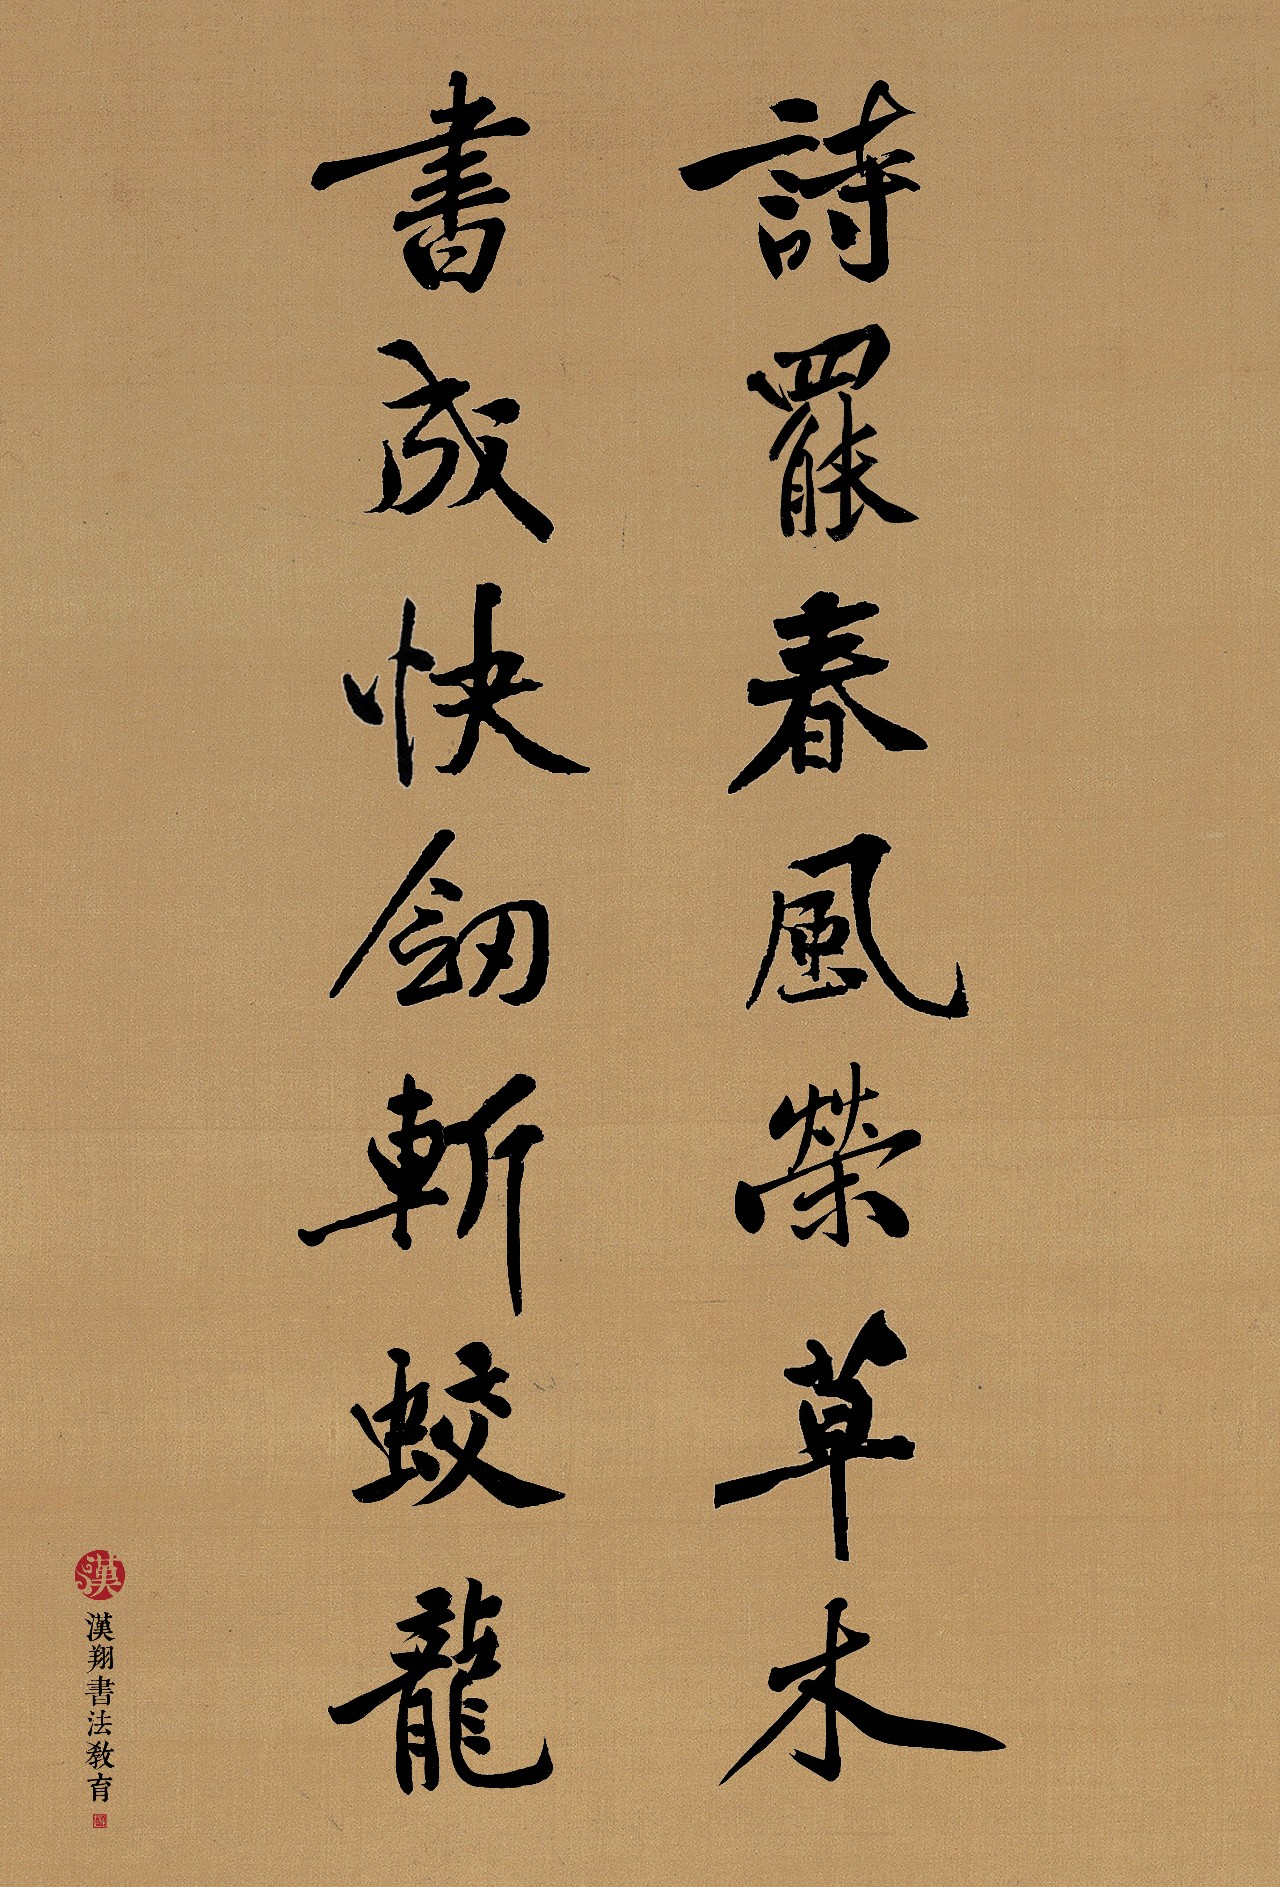 詩罷春風榮草木
書成快劒斬蛟龍
漢
漢翔書法教育